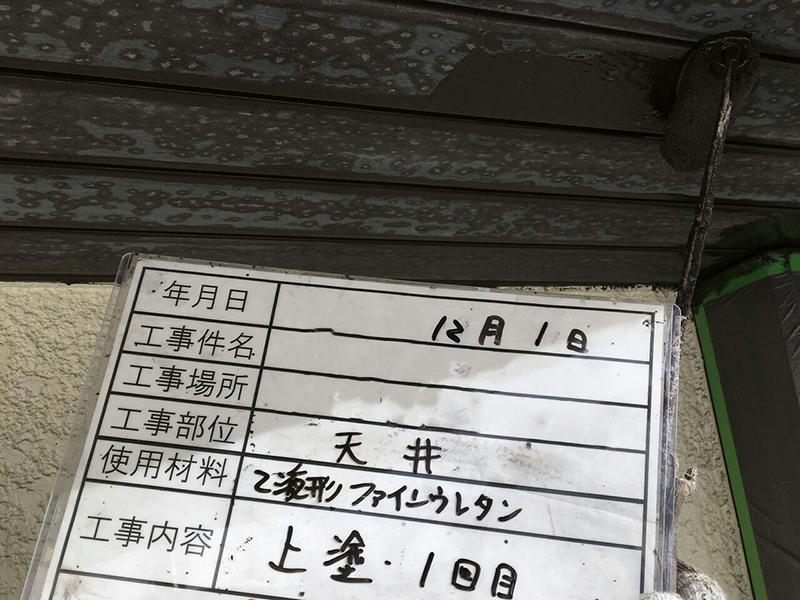 年月日 12月1日
工事件名
工事場所
工事部位 天井
使用材料 2液形ファインウレタン
工事内容 上塗・1回目